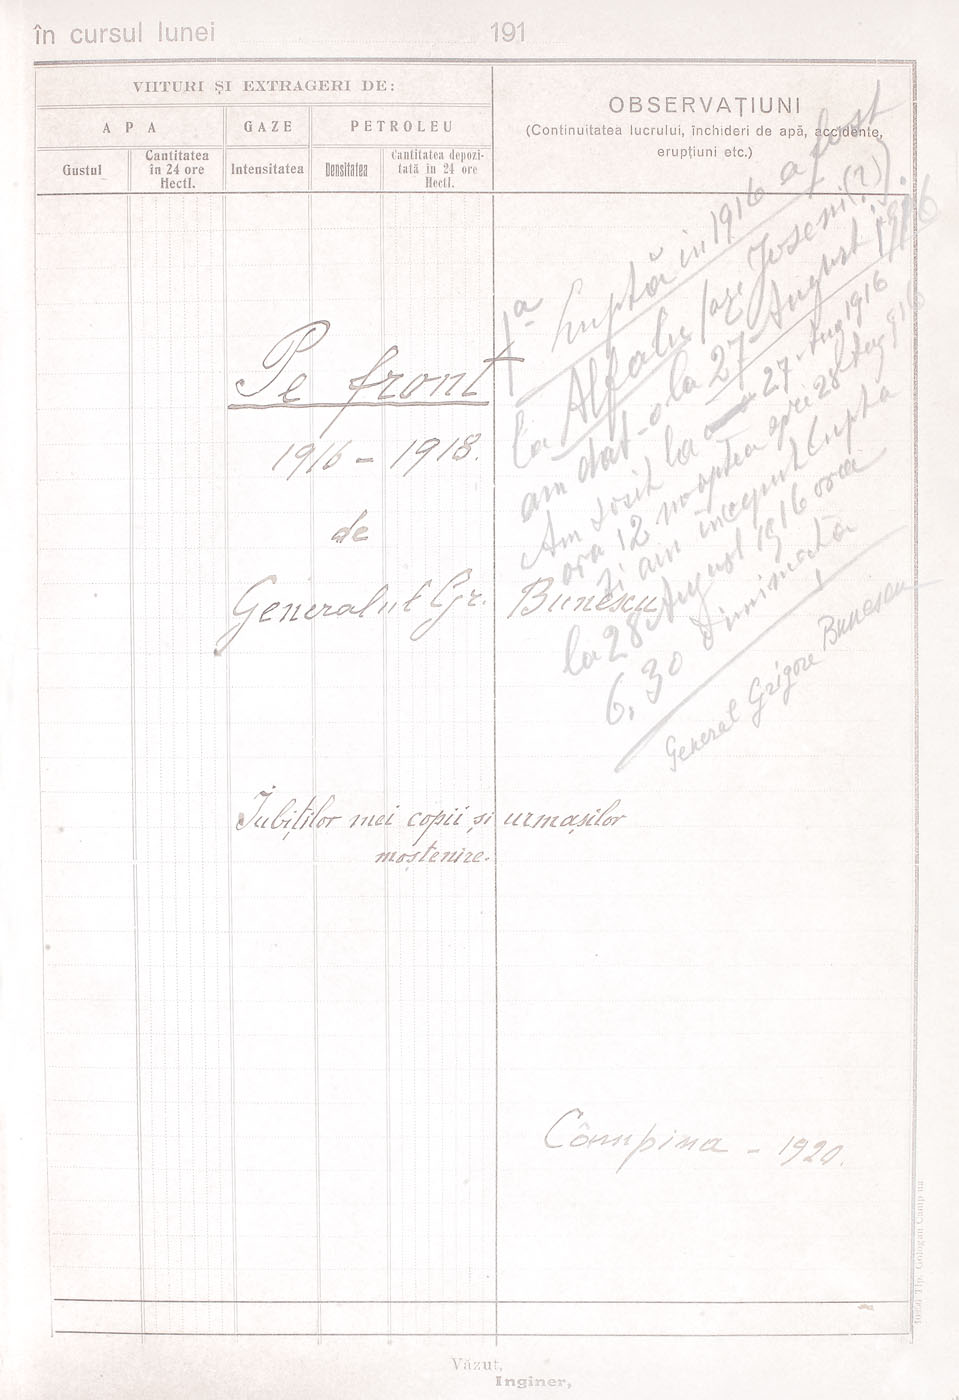 în cursul lunei 191
VIITURI ȘI EXTRAGERI DE:
APA
GAZE
PETROLEU
Gustul
Cantitatea
în 24 ore
Hectl.
Intensitatea
Densitatea
Cantitatea depozi-
tată în 24 ore
Hectl.
OBSERVAȚIUNI
(Continuitatea lucrului, închideri de apă, accidente,
erupțiuni etc.)
1a luptă în 1916 a fost
la Alfalu (azi Joseni (?)).
am dat-o la 27 August 1916
Am sosit la 27 Aug 1916
ora 12 noaptea spre 28 Aug 916
și am început lupta
la 28 August 1916 ora
6,30 dimineața
General Grigore Bunescu
Pe front
1916 – 1918.
de
Generalul Gr. Bunescu
Iubiților mei copii și urmașilor
moștenire.
Câmpina – 1920.
Văzut,
Inginer,